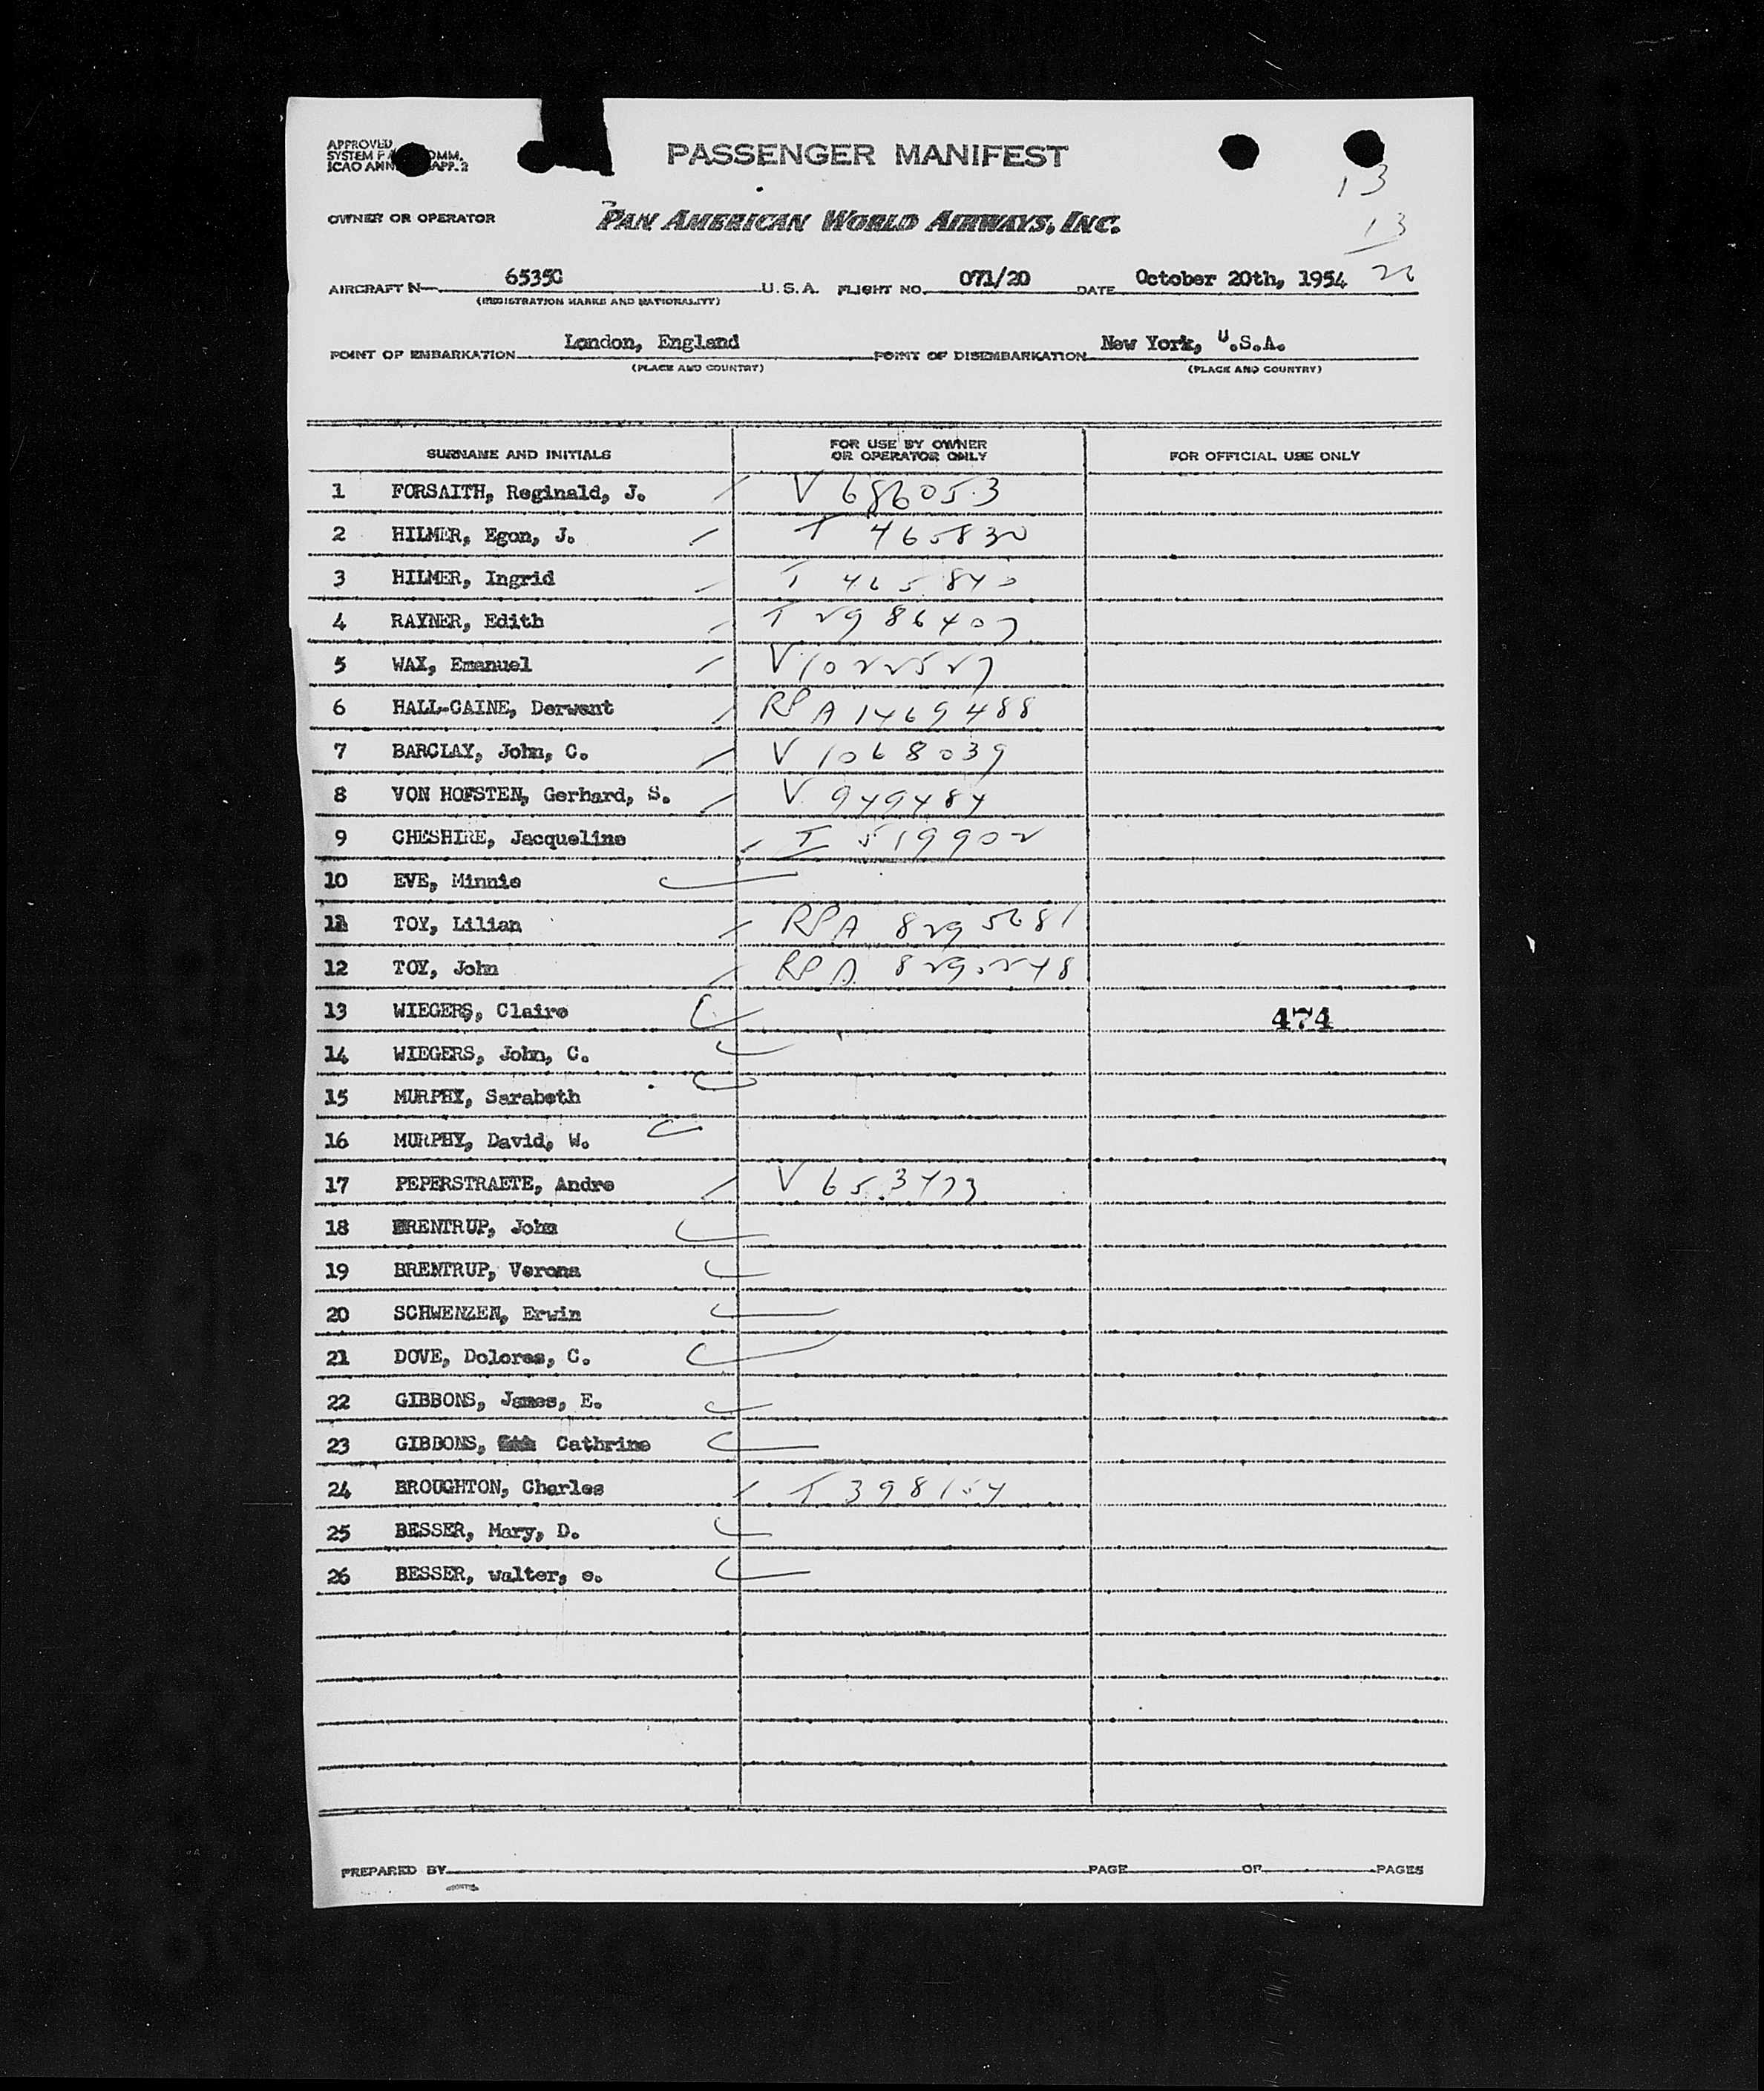 APPROVED
SYSTEM OMM.
ICAO ANN APP. 2
PASSENGER MANIFEST
13
OWNER OR OPERATOR PAN AMERICAN WORLD AIRWAYS, INC.
13
26
AIRCRAFT N 65350 U.S.A. FLIGHT NO. 071/20 DATE October 20th, 1954
(REGISTRATION MARKS AND NATIONALITY)
POINT OF EMBARKATION London, England POINT OF DISEMBARKATION New York, U.S.A.
(PLACE AND COUNTRY) (PLACE AND COUNTRY)
SURNAME AND INITIALS FOR USE BY OWNER OR OPERATOR ONLY FOR OFFICIAL USE ONLY
1 FORSAITH, Reginald, J. V 686053
2 HILMER, Egon, J. T 465830
3 HILMER, Ingrid T 465840
4 RAYNER, Edith T 2986407
5 WAX, Emanuel V 1022527
6 HALL-CAINE, Derwent RP A 1469488
7 BARCLAY, John, C. V 1068039
8 VON HOFSTEN, Gerhard, S. V 949484
9 CHESHIRE, Jacqueline T 519902
10 EVE, Minnie
11 TOY, Lilian RP A 8295681
12 TOY, John RP A
13 WIEGERS, Claire 474
14 WIEGERS, John, C.
15 MURPHY, Sarabeth
16 MURPHY, David, W.
17 PEPERSTRAETE, Andre V 653473
18 BRENTRUP, John
19 BRENTRUP, Verona
20 SCHWENZEN, Erwin
21 DOVE, Dolores, C.
22 GIBBONS, James, E.
23 GIBBONS, Cathrine
24 BROUGHTON, Charles T 398154
25 BESSER, Mary, D.
26 BESSER, walter, e.
PREPARED BY PAGE OF PAGES